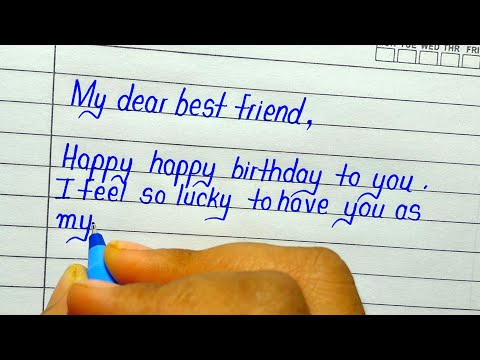 TUE WED THR FRI
My dear best friend,
Happy happy birthday to you.
I feel so lucky to have you as
my